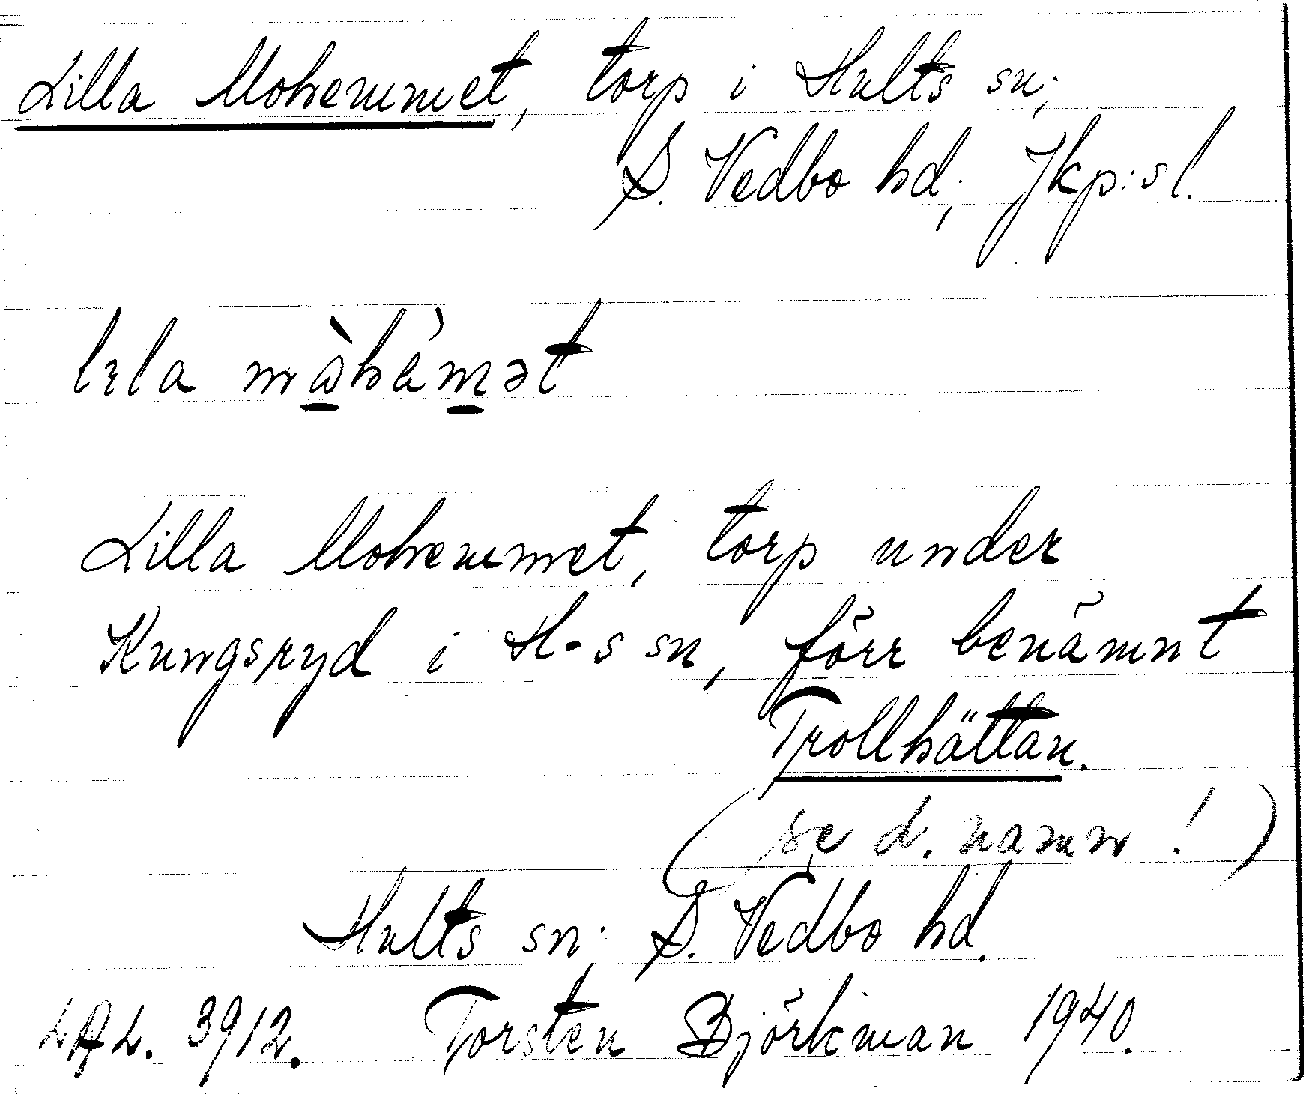 Lilla Mohemmet, torp i Hults sn;
S. Vedbo hd; Jkp:s l.
lɩla mὰhèmət
Lilla Mohemmet, torp under
Kungsryd i H-s sn, förr benämnt
Trollhättan.
(se d. namn!)
Hults sn; S. Vedbo hd.
LAL. 3912. Torsten Björkman 1940.